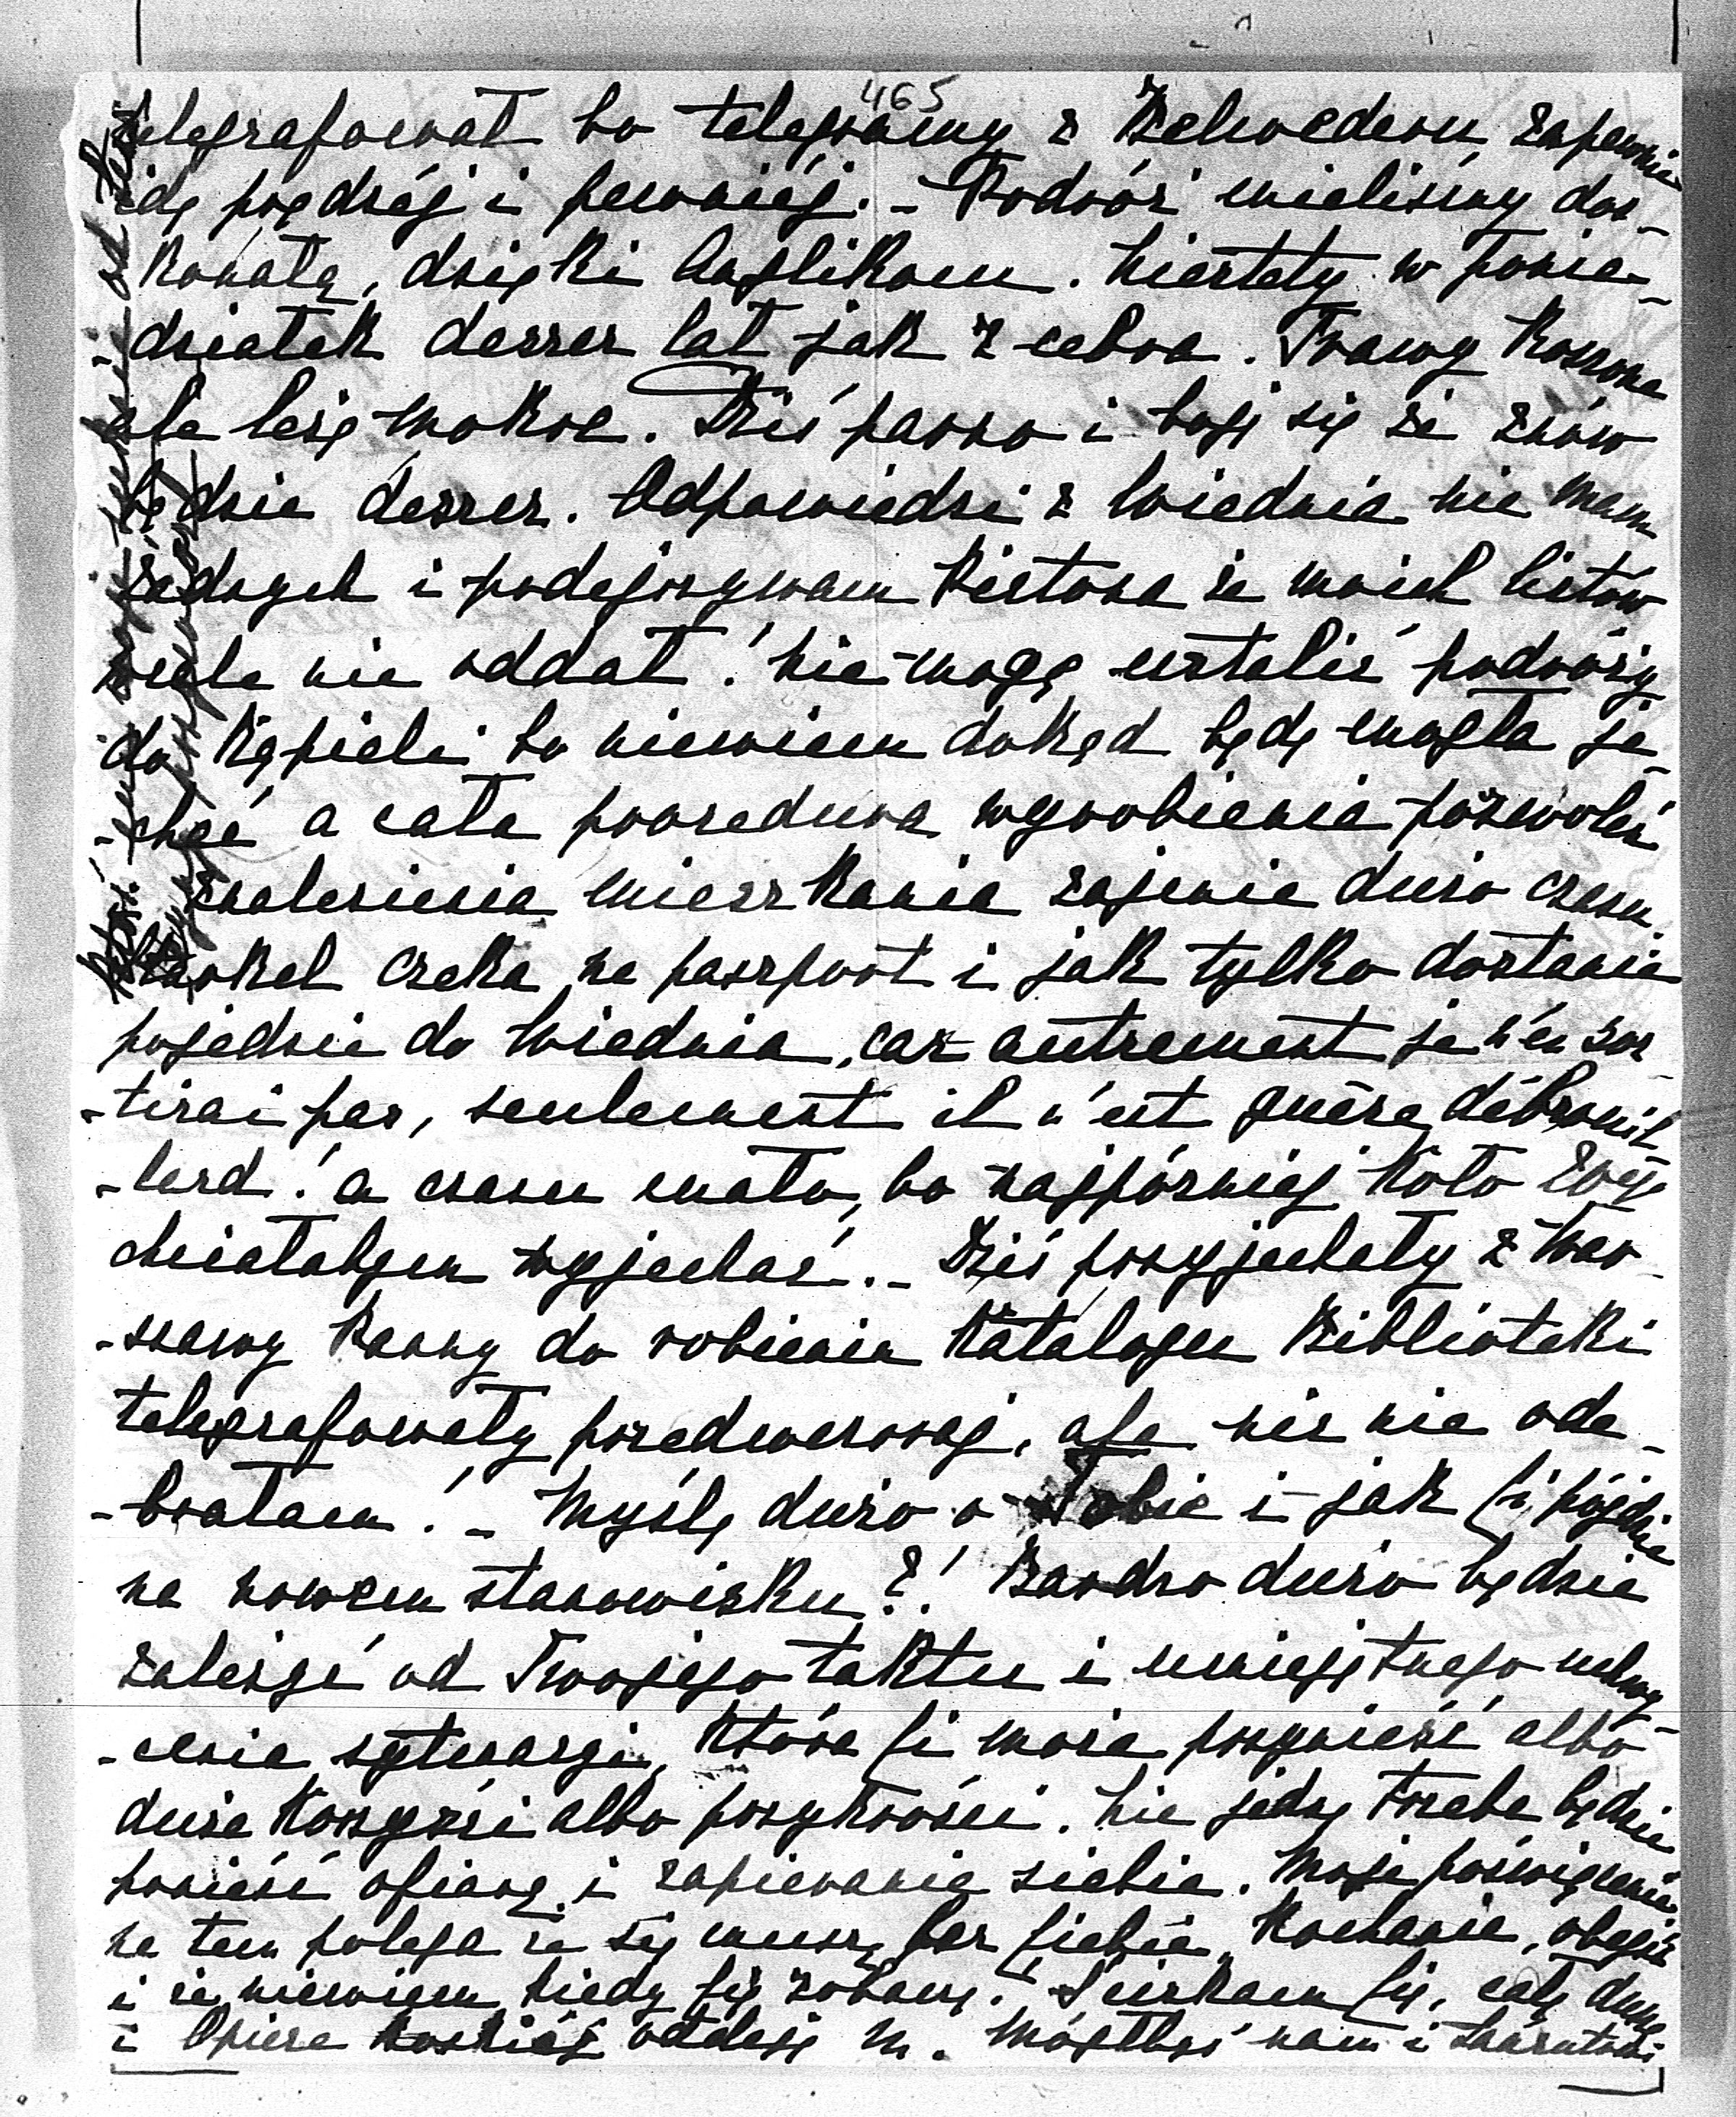 465
telegrafował bo telegramy z Belwederu zapewnie
idą prędzéj i pewniéj. – Podróż mieliśmy dos-
konałą, dzięki Anglikom. Niestety w ponie-
-działek deszcz lał jak z cebra. Trawy koszone
ale leżą mokre. Dziś parno i boję się że znów
będzie deszcz. Odpowiedzi z Wiednia nie mam
żadnych i podejrzywam że moich listów
wcale nie oddał! Nie mogę ustalić podróży
do kąpieli bo niewiem dokąd będę mogła je-
-chać a cała procedura wyrobienia pozwoleń
znalezienia mieszkania zajmie dużo czasu.
czeka na paszport i jak tylko dostanie
pojedzie do Wiednia, car autrement je n'en sor
-tirai pas, seulement il n'est guère débrouil
-lard! a czasu mało, bo najpóźniej koło 20go
chciałabym wyjechać. – Dziś przyjechały z War-
-szawy Panny do robienia Katalogu Biblioteki
telegrafowały przedwczoraj, ale nic nie ode-
-brałam! – Myślę dużo o Tobie i jak Ci pójdzie
na nowem stanowisku?! Bardzo dużo będzie
zależéć od Twojego taktu i umiejętnego uchwy-
-cenia sytuacyi, która Ci może przynieść albo
duże korzyści albo przykrości. Nie jedną trzeba będzie
ponieść ofiarę i zapieranie siebie. Moje poświęcenie
na tem polega że się muszę bez Ciebie, Kochanie, obejść
i że niewiem kiedy Cię zobaczę. Ściskam Cię, całą duszą
i Opiece Boskiéj oddaję M. Mógłbyś nam i